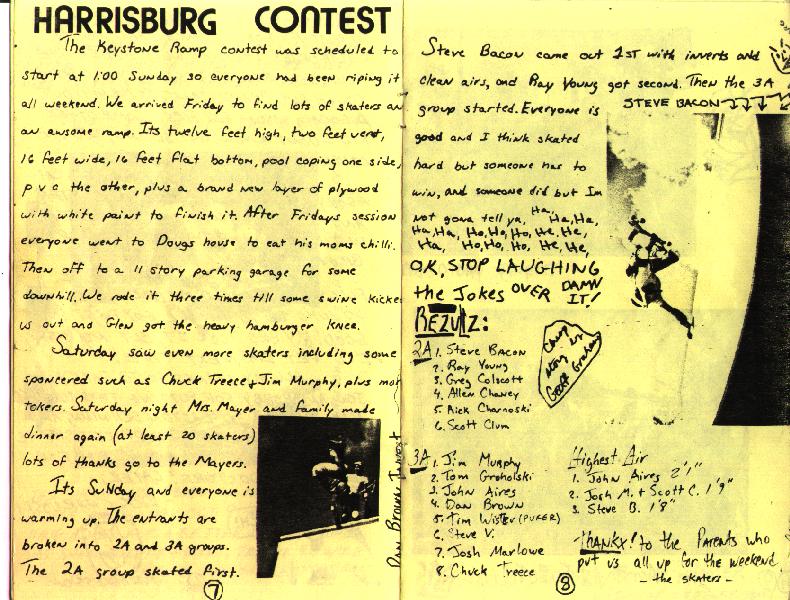 HARRISBURG CONTEST
The Keystone Ramp contest was scheduled to
start at 1:00 Sunday so everyone had been riping it
all weekend. We arrived Friday to find lots of skaters an
an awsome ramp. Its twelve feet high, two feet vert,
16 feet wide, 16 feet flat bottom, pool coping one side,
pvc the other, plus a brand new layer of plywood
with white paint to finish it. After Fridays session
everyone went to Dougs house to eat his moms chilli.
Then off to a 11 story parking garage for some
downhill. We rode it three times till some swine kicke
us out and Glen got the heavy hamburger knee.
Saturday saw even more skaters including some
sponcered such as Chuck Treece + Jim Murphy, plus
tokers. Saturday night Mrs. Mayer and family made
dinner again (at least 20 skaters)
lots of thanks go to the Mayers.
Its Sunday and everyone is
warming up. The entrants are
broken into 2A and 3A groups.
The 2A group skated first.
DAN BROWN INVERT
7
Steve Bacon came out 1ST with inverts and
clean airs, and Ray Young got second. Then the 3A
group started. Everyone is
STEVE BACON
good and I think skated
hard but someone has to
win, and someone did but Im
not gona tell ya, Ha, Ha, Ha,
Ha, Ha, Ho, Ho, Ho, He, He,
Ha, Ho, Ho, Ho, He, He,
O.K, STOP LAUGHING
the Jokes OVER DAMN
IT!
REZULZ:
2A 1. Steve Bacon
2. Ray Young
3. Greg Colscott
4. Allen Chaney
5. Rick Charnoski
6. Scott Clum
Cheap
story by
Geoff Graham
3A 1. Jim Murphy
2. Tom Groholski
3. John Aires
4. Dan Brown
5. Tim Wister (PUKER)
6. Steve V.
7. Josh Marlowe
8. Chuck Treece
Highest Air
1. John Aires 2'1"
2. Josh M. + Scott C. 1'9"
3. Steve B. 1'8"
THANKX! to the Parents who
put us all up for the weekend
- the skaters -
8